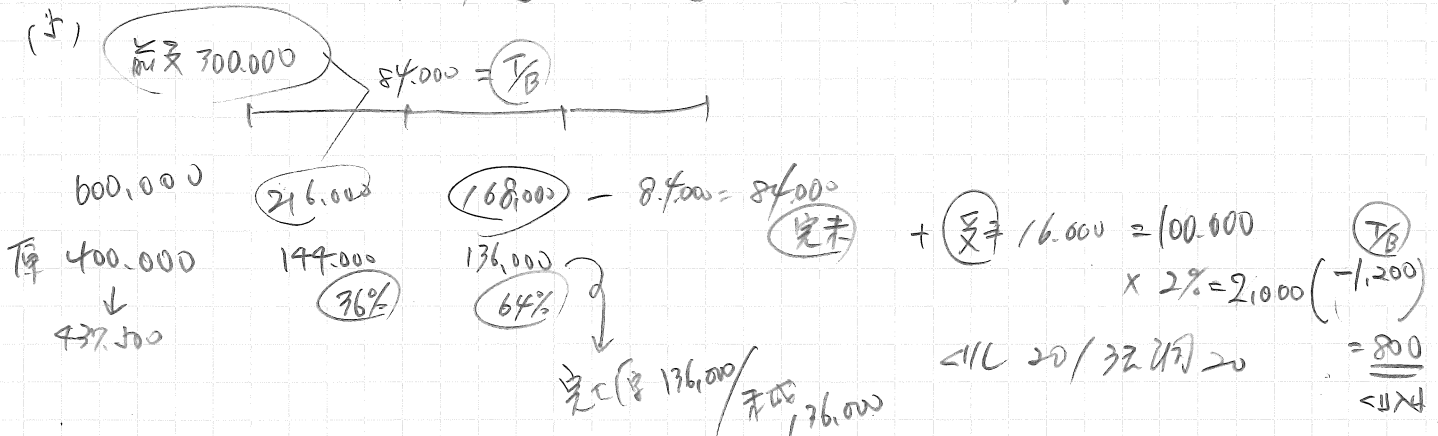 前受 300.000
84.000 = T/B
600,000 216.000 168,000 - 84.000 = 84.000
完未 + 受手 16.000 = 100.000 T/B
原 400.000 144.000 136,000
× 2% = 2,000 (-1,200)
36% 64%
437.500
= 800
完工原 136,000/未成 136,000